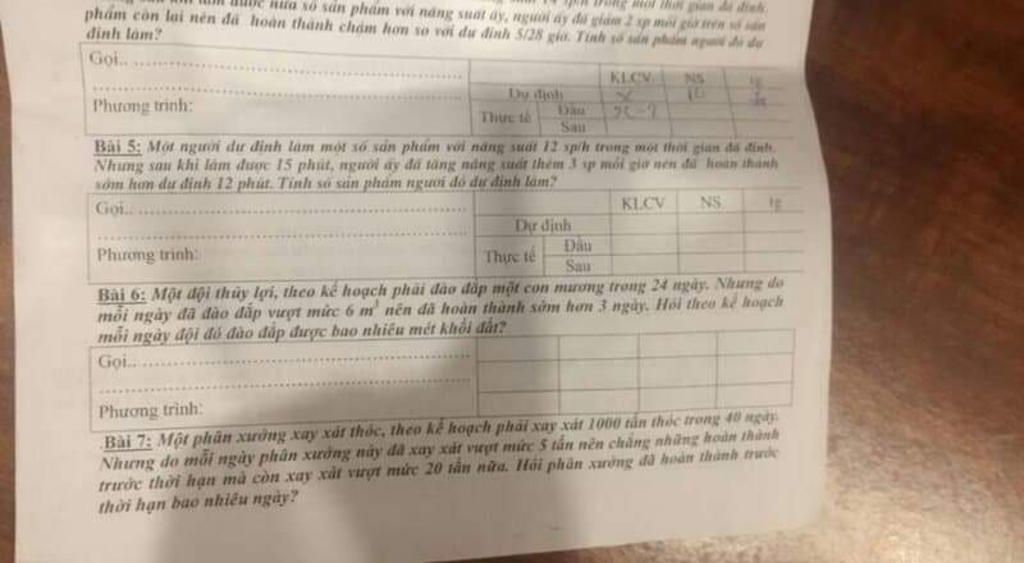 được nửa số sản phẩm với năng suất ấy, người ấy đã giảm 2 sp mỗi giờ trên số sản
phẩm còn lại nên đã hoàn thành chậm hơn so với dự định 5/28 giờ. Tính số sản phẩm người đó dự
định làm?
Gọi..
KLCV NS tg
Dự định x
Phương trình:
Thực tế Đầu
Sau
Bài 5: Một người dự định làm một số sản phẩm với năng suất 12 sp/h trong một thời gian đã định.
Nhưng sau khi làm được 15 phút, người ấy đã tăng năng suất thêm 3 sp mỗi giờ nên đã hoàn thành
sớm hơn dự định 12 phút. Tính số sản phẩm người đó dự định làm?
Gọi..
KLCV NS tg
Dự định
Phương trình:
Thực tế Đầu
Sau
Bài 6: Một đội thủy lợi, theo kế hoạch phải đào đắp một con mương trong 24 ngày. Nhưng do
mỗi ngày đã đào đắp vượt mức 6 m³ nên đã hoàn thành sớm hơn 3 ngày. Hỏi theo kế hoạch
mỗi ngày đội đó đào đắp được bao nhiêu mét khối đất?
Gọi..
Phương trình:
Bài 7: Một phân xưởng xay xát thóc, theo kế hoạch phải xay xát 1000 tấn thóc trong 40 ngày.
Nhưng do mỗi ngày phân xưởng này đã xay xát vượt mức 5 tấn nên chẳng những hoàn thành
trước thời hạn mà còn xay xát vượt mức 20 tấn nữa. Hỏi phân xưởng đã hoàn thành trước
thời hạn bao nhiêu ngày?